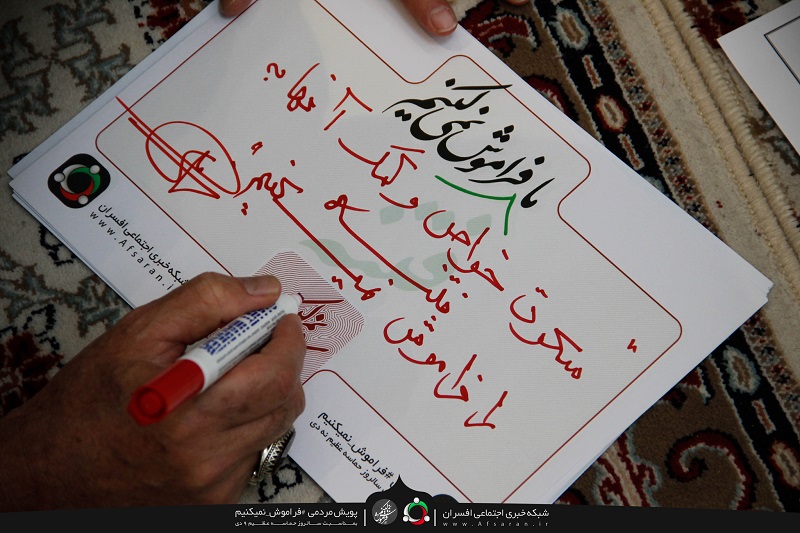 ما فراموش نمی‌کنیم
سکوت خواص و کمک آنها به
فتنه
را فراموش نمیکنیم
شبکه خبری اجتماعی افسران
www.Afsaran.ir
#فراموش_نمیکنیم
سالروز حماسه عظیم نه دی
پویش مردمی #فراموش_نمیکنیم
بمناسبت سالروز حماسه عظیم ۹ دی
شبکه خبری اجتماعی افسران
www.Afsaran.ir